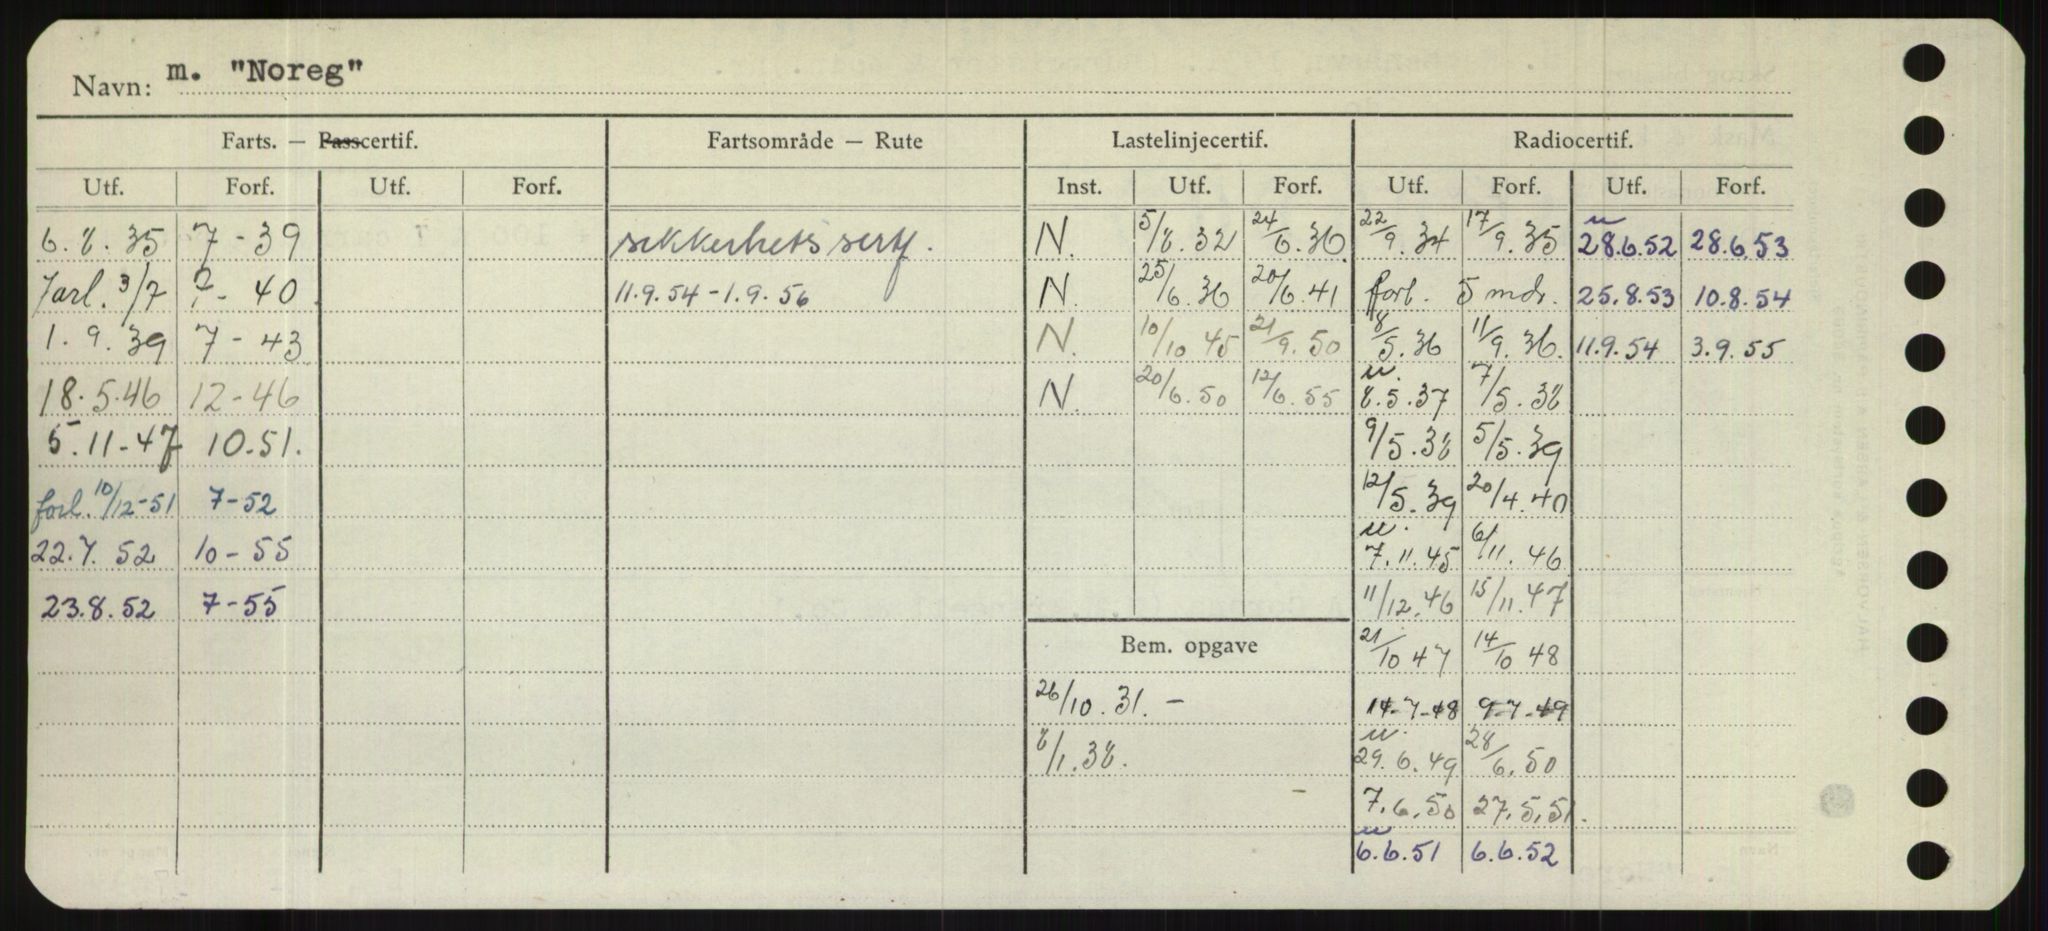 Navn: m. "Noreg"
Farts. — Passcertif. Fartsområde — Rute Lastelinjecertif. Radiocertif.
Utf. Forf. Utf. Forf. Inst. Utf. Forf. Utf. Forf. Utf. Forf.
6.8.35 7-39 sikkerhets sertf. N. 5/8.32 24/6.36 22/9.34 17/9.35 u 28.6.52 28.6.53
Forl. 3/7 7-40 11.9.54-1.9.56 N. 25/6.36 20/6.41 forl. 5 mdr. 25.8.53 10.8.54
1.9.39 7-43 N. 10/10 45 21/9.50 8/5.36 11/9.36. 11.9.54 3.9.55
18.5.46 12-46 N. 20/6.50 12/6.55 u. 8.5.37 7/5.38
5.11-47 10.51. 9/5.38 5/5.39
forl. 10/12-51 7-52 12/5.39 20/4.40
22.7.52 10-55 u. 7.11.45 6/11.46
23.8.52 7-55 11/12.46 15/11.47
Bem. opgave 21/10 47 14/10 48
26/10.31.- 14-7-48 9-7-49
8/1.38. u. 29.6.49 28/6.50
7.6.50 27.5.51.
u 6.6.51 6.6.52